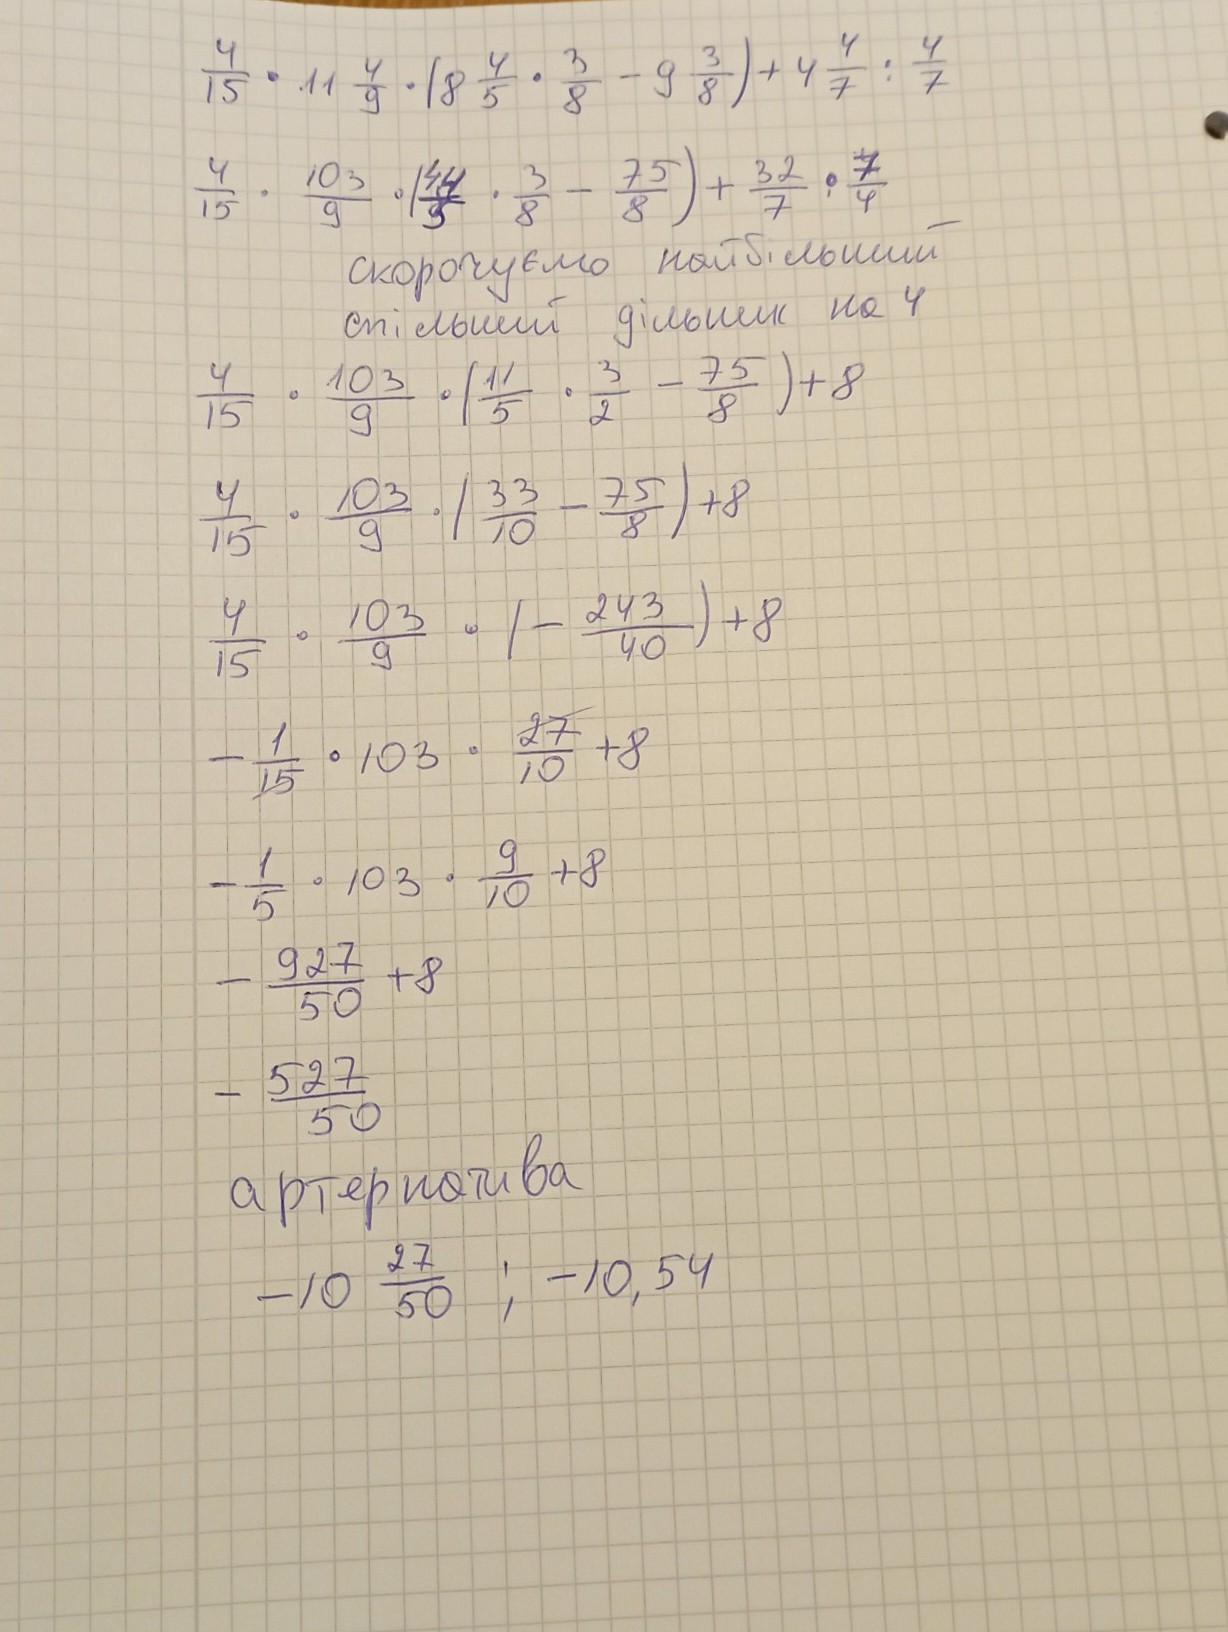 4/15 · 11 4/9 · (8 4/5 · 3/8 - 9 3/8) + 4 4/7 : 4/7
4/15 · 103/9 · (44/5 · 3/8 - 75/8) + 32/7 · 7/4
скорочуємо найбільший
спільний дільник на 4
4/15 · 103/9 · (11/5 · 3/2 - 75/8) + 8
4/15 · 103/9 · (33/10 - 75/8) + 8
4/15 · 103/9 · (- 243/40) + 8
- 1/15 · 103 · 27/10 + 8
- 1/5 · 103 · 9/10 + 8
- 927/50 + 8
- 527/50
артернатива
-10 27/50 ; -10,54